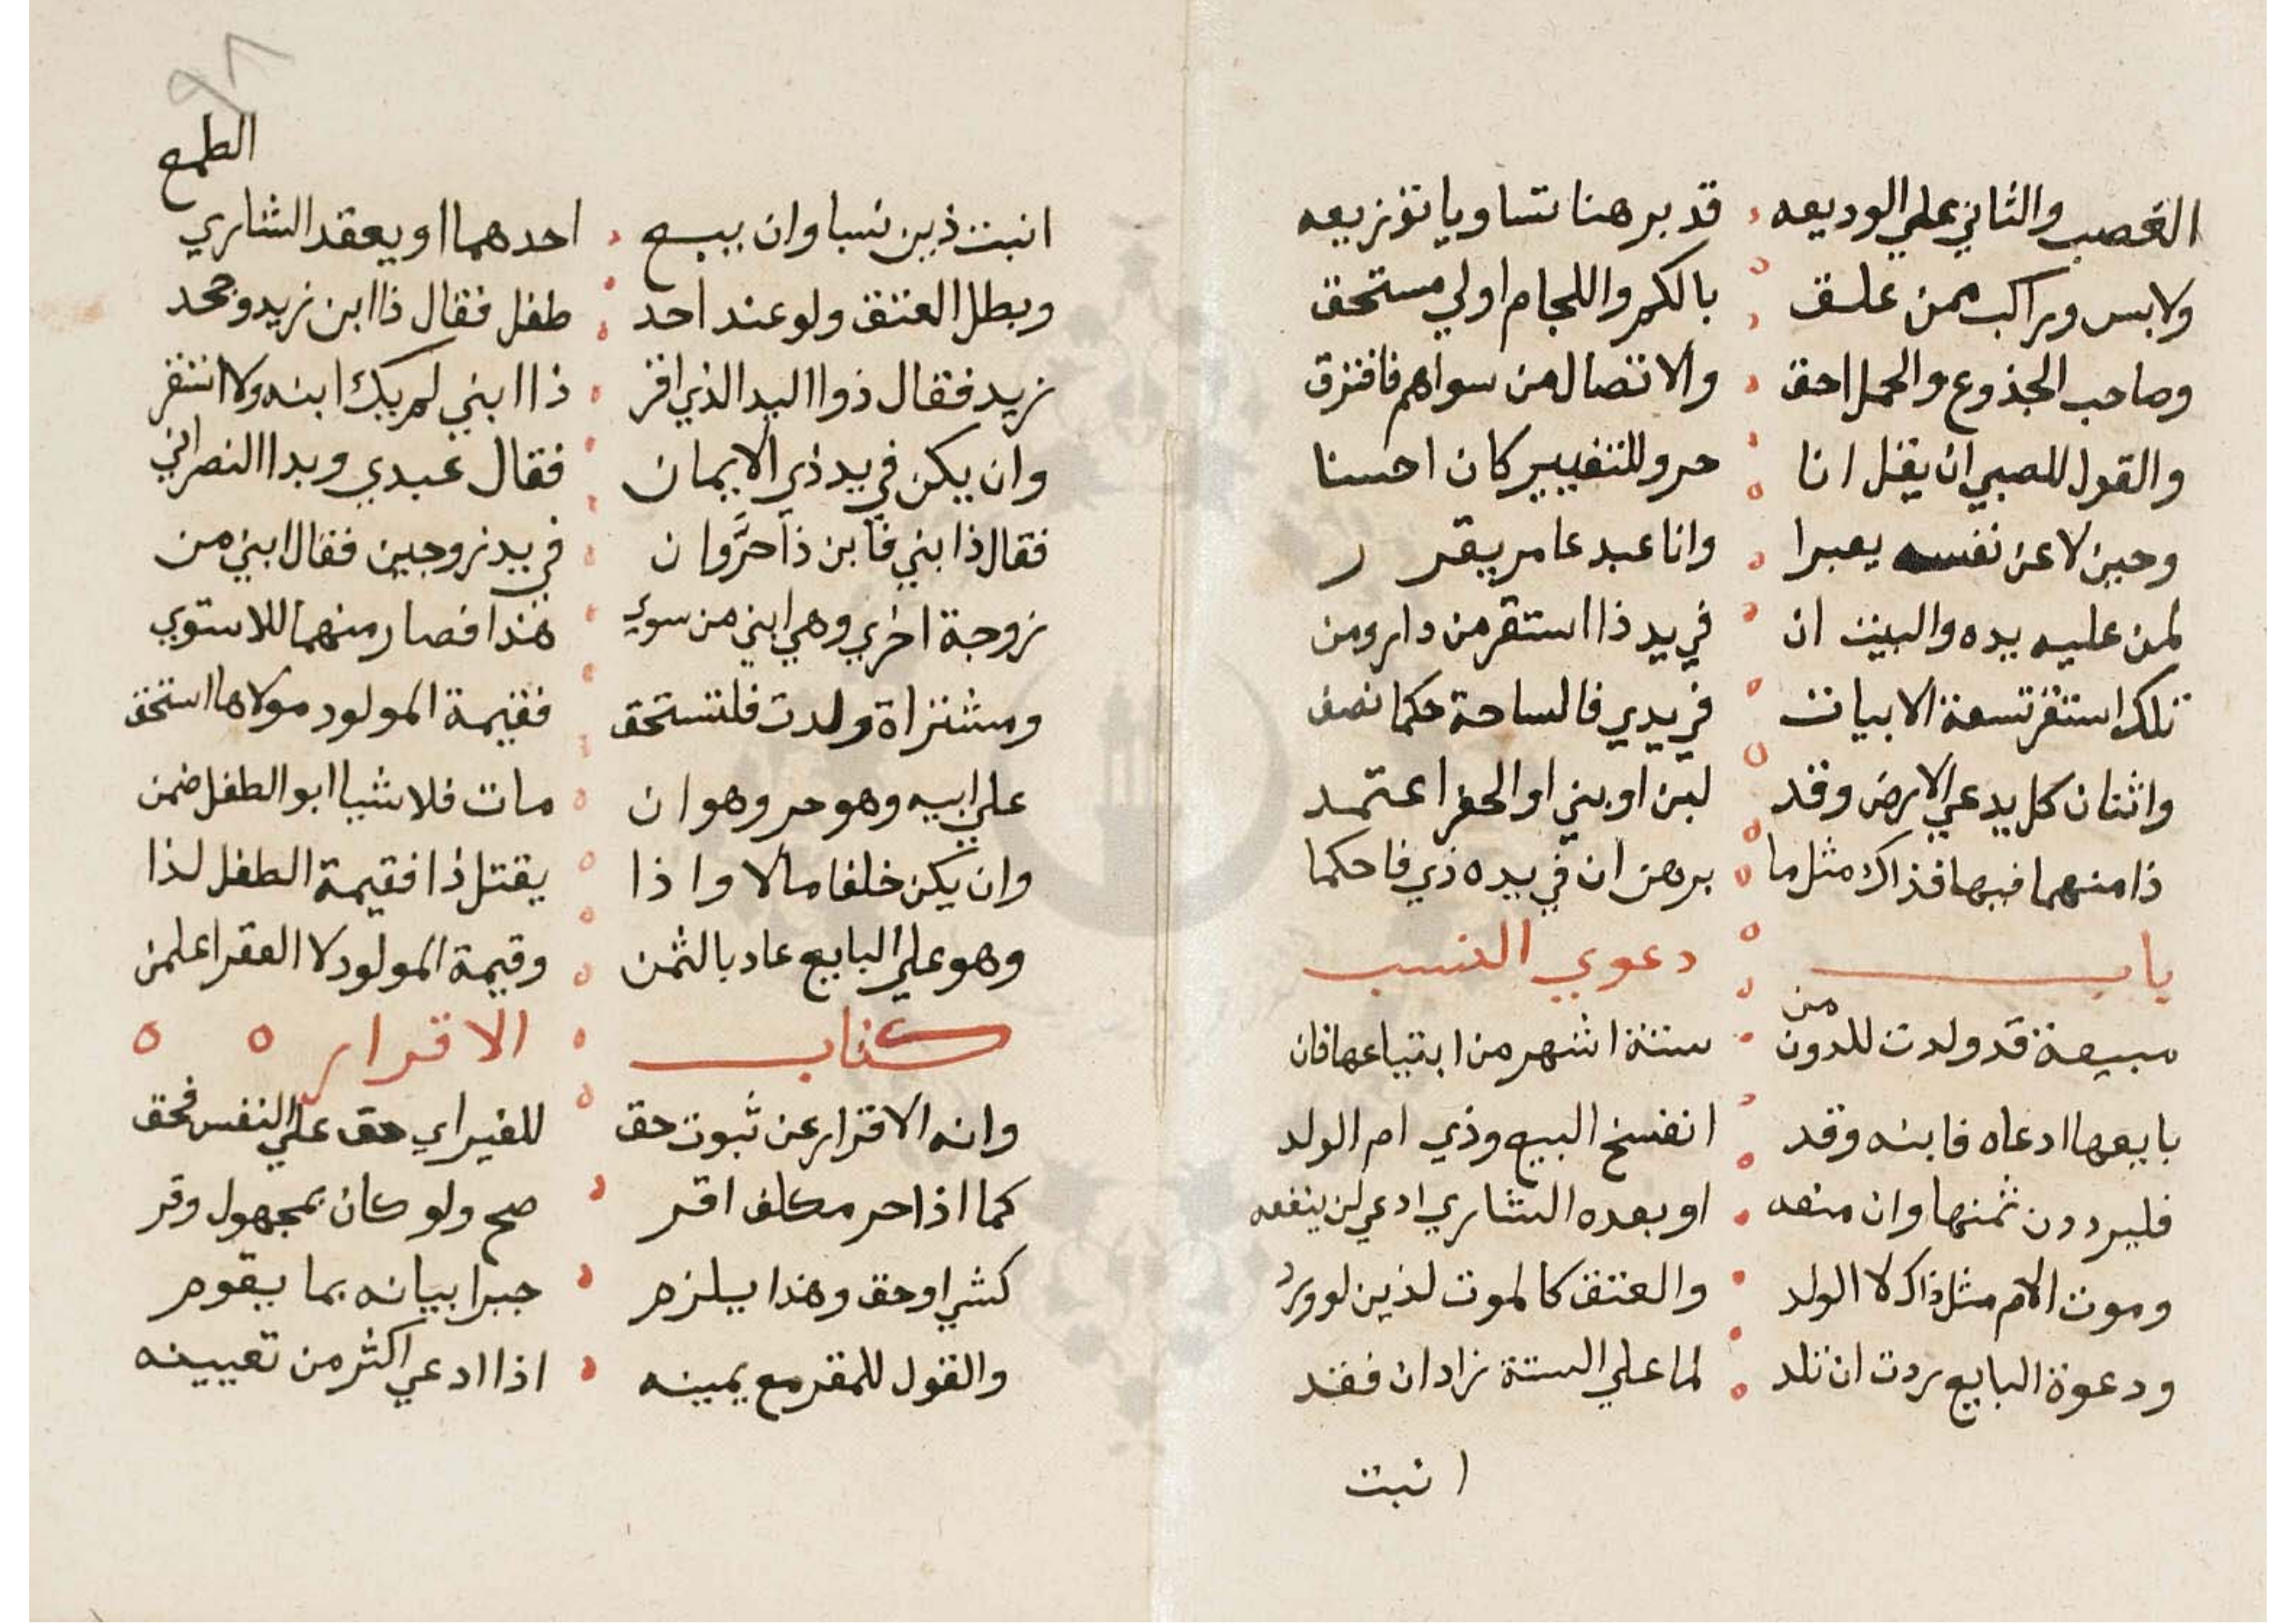 الغصب والثاني علي الوديعه قد برهنا تساويا توزيعه
ولابس وراكب ممن علق بالكم واللجام اولي مستحق
وصاحب الجذوع والحمل احق والاتصال من سواهم فافترق
والقول للصبي ان يقل انا حر وللتغيير كان احسنا
وحين لا عن نفسه يعبرا وانا عبد عامر يقرر
لمن عليه يده والبيت ان في يد ذا استقر من دار ومن
تلك استقر تسعة الابيات في يدي فالساحة حكما نصف
واثنان كل يدعي الارض وقد لبن او بني او الحفر اعتمد
ذا منهما فيها فذاك مثل ما برهن ان في يده ذي فاحكما
باب دعوي النسب
مبيعة قد ولدت للدون من ستة اشهر من ابتياعها فان
بايعها ادعاه فابنه وقد انفسخ البيع وذي ام الولد
فليرددن ثمنها وان معه او بعده الشاري ادعي لن ينفعه
وموت الام مثل ذاك لا الولد والعتق كالموت لذين لو ورد
ودعوة البايع ردت ان تلد لما علي الستة زاد ان فقد
اثبت
٩٨
الطمح
اثبت ذين نسبا وان يبيع احدهما او يعقد الشاري
وبطل العتق ولو عند احد طفل فقال ذا ابن زيد وجحد
زيد فقال ذوا اليد الذي اقر ذا ابني لم يك ابنه ولا انتقر
وان يكن في يد ذي الايمان فقال عبدي وبدا النصراني
فقال ذا بني فابن ذا حر وان في يد زوجين فقال ابني من
زوجة اخري وهي ابني من سوي هذا فصار منهما للاستوي
ومشتراة ولدت فلتستحق فقيمة المولود مولاها استحق
علي ابيه وهو حر وهو ان مات فلا شيا ابو الطفل ضمن
وان يكن خلفا مالا واذا يقتل ذا فقيمة الطفل لذا
وهو علي البايع عاد بالثمن وقيمة المولود لا العقر اعلمن
كتاب الاقرار
وانه الاقرار عن ثبوت حق للغير اي حق علي النفس فحق
كما اذا حر مكلف اقر صح ولو كان بمجهول وقر
كشي او حق وهذا يلزم جبرا بيانه بما يقوم
والقول للمقر مع يمينه اذا ادعي اكثر من تعيينه